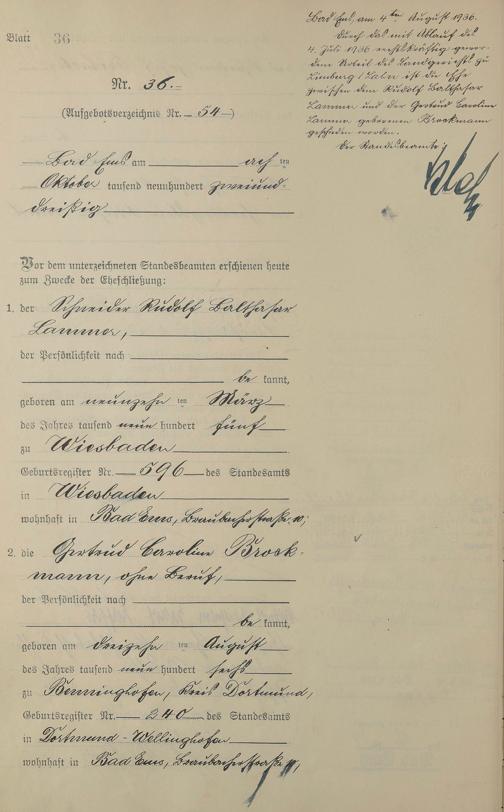 Blatt 36
Nr. 36.-
(Aufgebotsverzeichnis Nr. 54)
Bad Ems am acht ten
Oktober tausend neunhundert zweiund-
dreißig
Vor dem unterzeichneten Standesbeamten erschienen heute
zum Zwecke der Eheschließung:
1. der Schneider Rudolf Balthasar
Lammer,
der Persönlichkeit nach
be kannt,
geboren am neunzehn ten März
des Jahres tausend neun hundert fünf
zu Wiesbaden
Geburtsregister Nr. 596 des Standesamts
in Wiesbaden
wohnhaft in Bad Ems, Braubacherstraße
2. die Gertrud Caroline Brock-
mann, ohne Beruf,
der Persönlichkeit nach
be kannt,
geboren am dreizehn ten August
des Jahres tausend neun hundert sechs
zu Benninghofen, Kreis Dortmund,
Geburtsregister Nr. 240 des Standesamts
in Dortmund-Wellinghofen
wohnhaft in Bad Ems, Braubacherstraße
Bad Ems, am 4ten August 1936.
Durch das mit Ablauf des
4. Juli 1936 rechtskräftig gewor-
dene Urteil des Landgerichts zu
Limburg/Lahn ist die Ehe
zwischen dem Rudolf Balthasar
Lammer und der Gertrud Caroline
Lammer geborenen Brockmann
geschieden worden.
Der Standesbeamte: